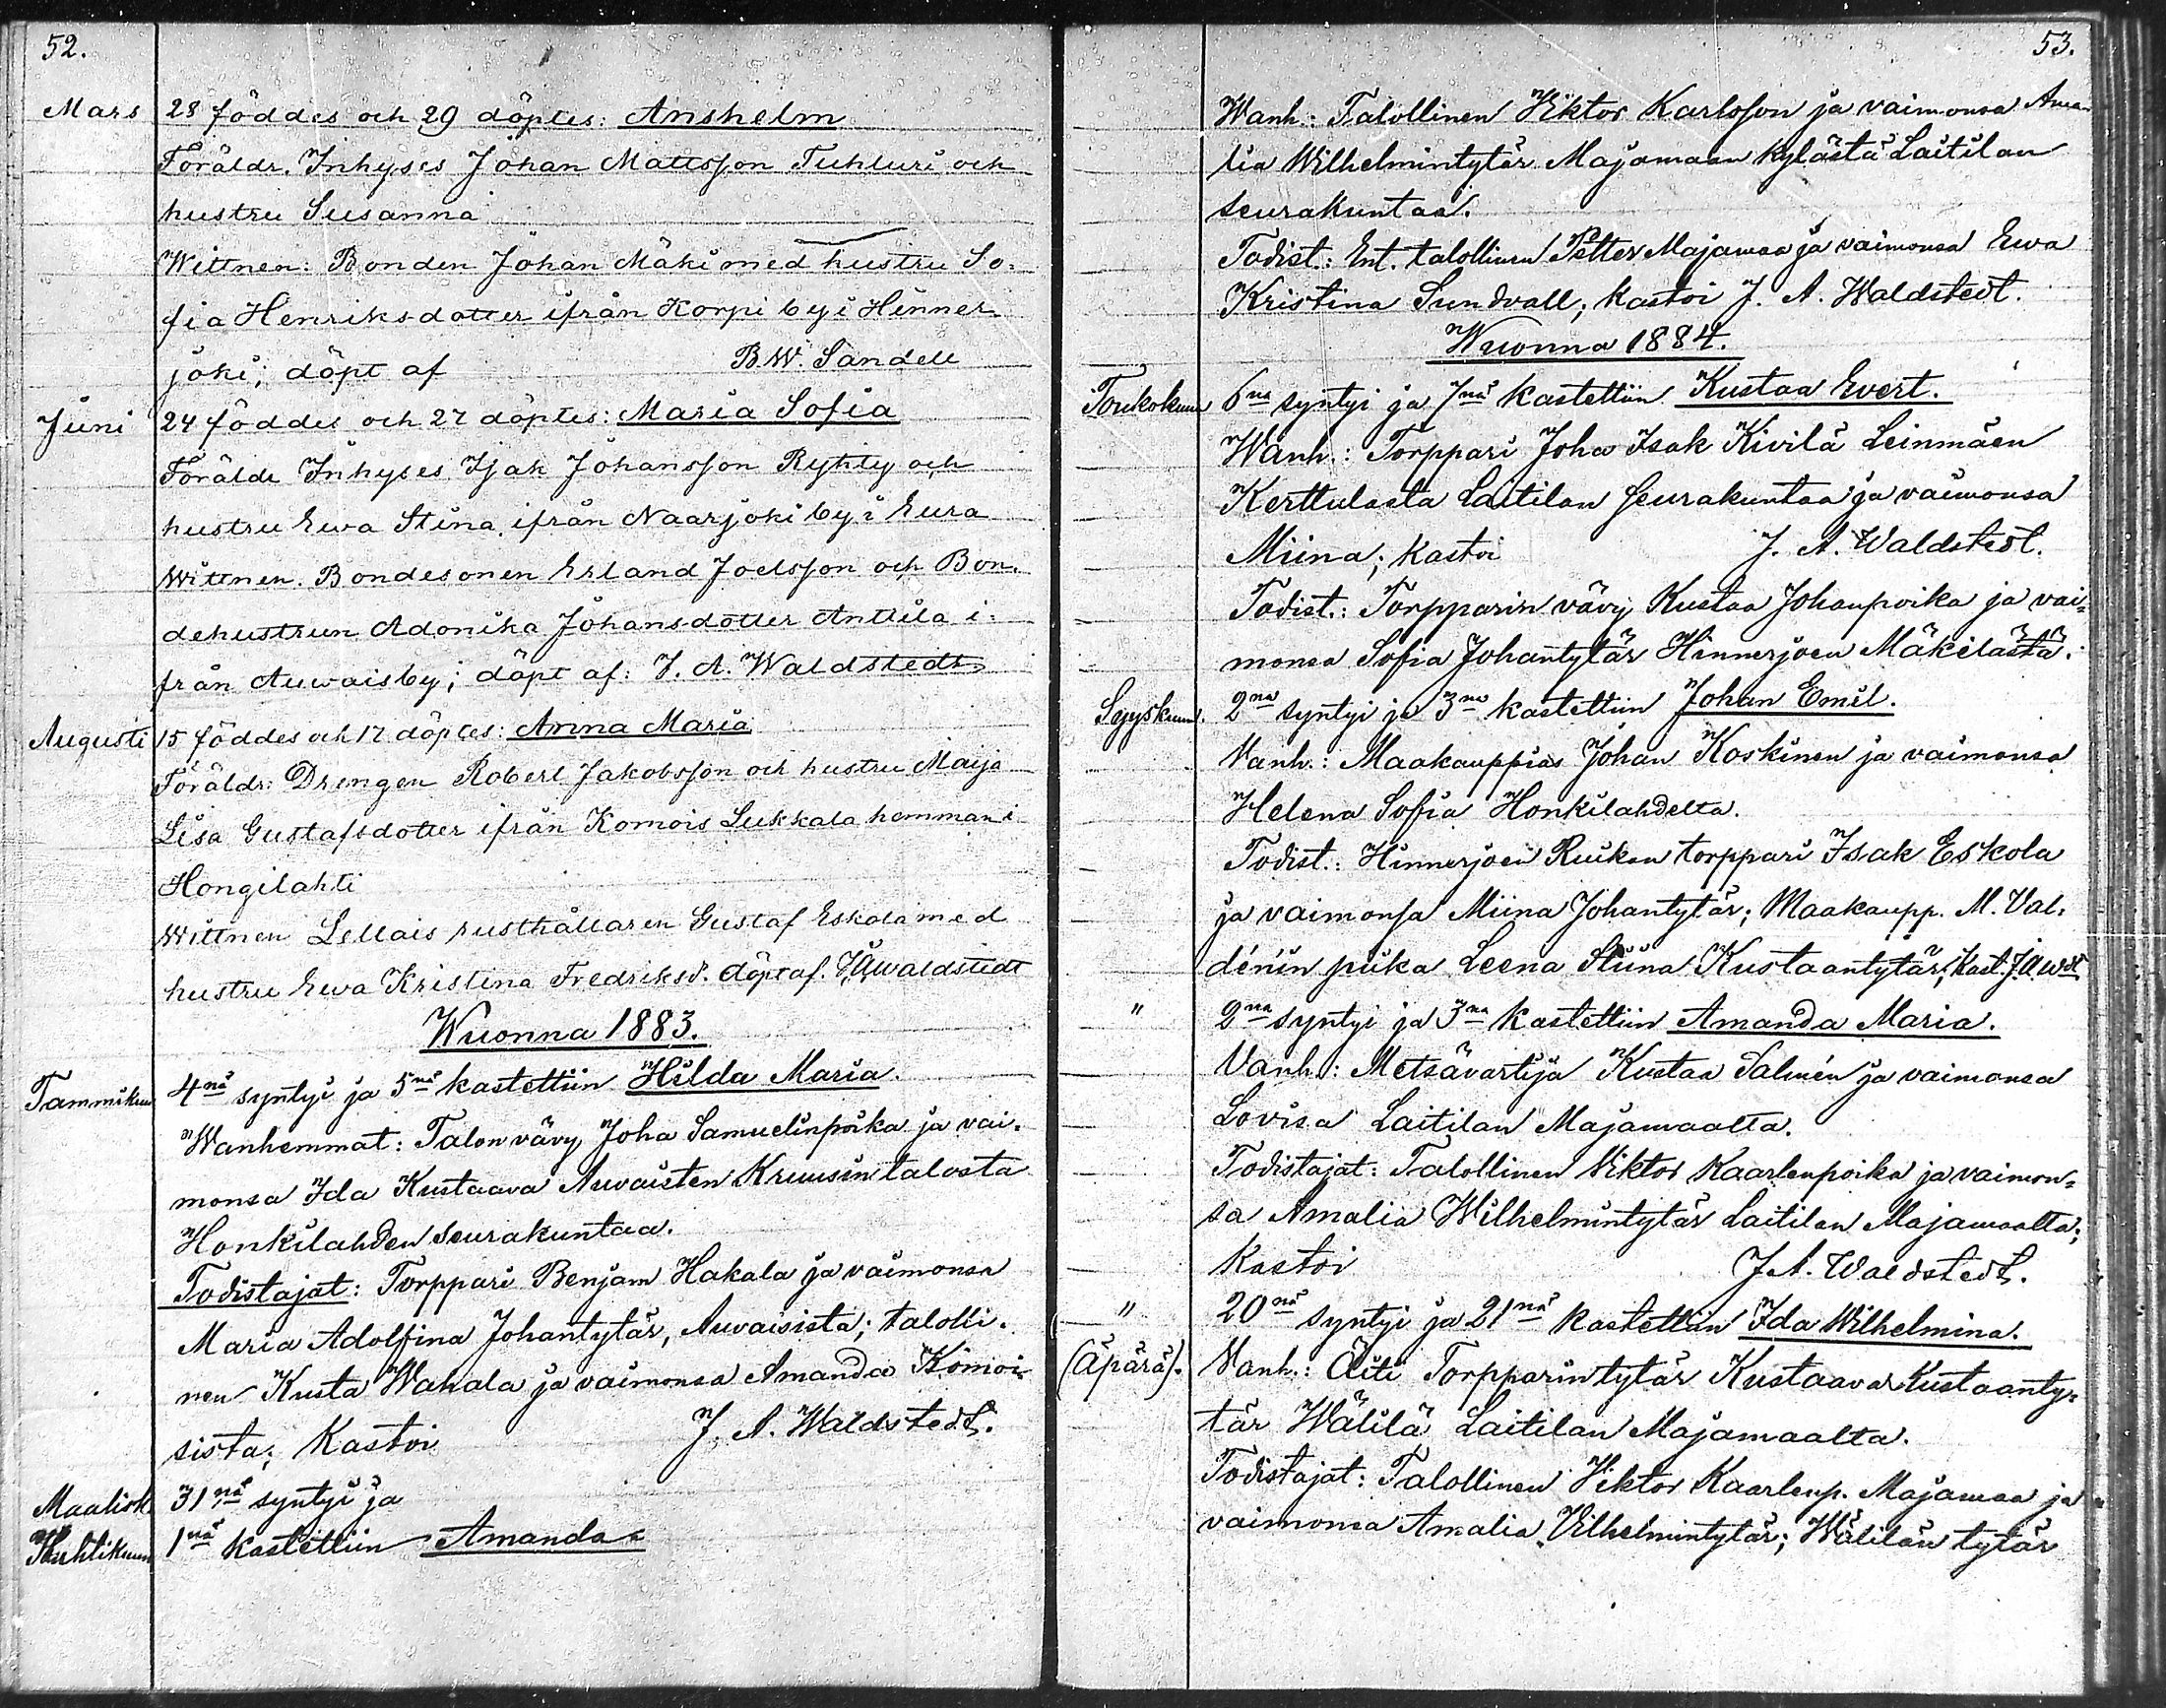 52.
Mars 28 föddes och 29 döptes: Anshelm
Föräldr. Inhyses Johan Mattsson Tuhluri och
hustru Susanna
Wittnen: Bonden Johan Mäki med hustru So-
fia Henriksdotter ifrån Korpi by i Hinner
joki; döpt af B.W. Sandell
Juni 24 föddes och 27 döptes: Maria Sofia
Förälde Inhyses Isak Johansson Ryhty och
hustru Ewa Stina ifrån Naarjoki by i Eura
Wittnen. Bondesonen Erland Joelsson och Bon-
dehustrun Adonika Johansdotter Anttila i-
från Auwais by; döpt af: J. A. Waldstedt
Augusti 15 föddes och 17 döptes: Anna Maria
Föräldr: Drengen Robert Jakobsson och hustru Maija
Lisa Gustafsdotter ifrån Komois Lukkala hemman i
Hongilahti
Wittnen Lellais rusthållaren Gustaf Eskola med
hustru Ewa Kristina Fredriksd. döpt af. J.A Waldstedt
Wuonna 1883.
Tammikuu 4nä syntyi ja 5nä kastettiin Hilda Maria.
Wanhemmat: Talon vävy Joha Samuelinpoika ja vai-
monsa Ida Kustaava Auvaisten Kruusin talosta
Honkilahden seurakuntaa.
Todistajat: Torppari Benjam Hakala ja vaimonsa
Maria Adolfina Johantytär, Auvaisista; talolli-
nen Kusta Wahala ja vaimonsa Amanda Komoi-
sista; Kastoi J. A. Waldstedt.
Maalisk 31nä syntyi ja
Huhtikuun 1nä kastettiin Amanda
53.
Wanh.: Talollinen Viktor Karlsson ja vaimonsa Ama-
lia Wilhelmintytär Majamaan kylästä Laitilan
seurakuntaa.
Todist.: Ent. talollinen Petter Majamaa ja vaimonsa Ewa
Kristina Sundvall; kastoi J. A. Waldstedt.
Wuonna 1884.
Toukokuun 6na syntyi ja 7nä kastettiin Kustaa Evert.
Wanh.: Torppari Joha Isak Kivilä Leinmäen
Kerttulasta Laitilan seurakuntaa ja vaimonsa
Miina; kastoi J. A. Waldstedt.
Todist.: Torpparin vävy Kustaa Johanpoika ja vai-
monsa Sofia Johantytär Hinnerjoen Mäkilästä.
Syyskuun. 2na syntyi ja 3na kastettiin Johan Emil.
Vanh.: Maakauppias Johan Koskinen ja vaimonsa
Helena Sofia Honkilahdelta.
Todist.: Hinnerjoen Ruikan torppari Isak Eskola
ja vaimonsa Miina Johantytär; Maakaupp. M. Val-
dénin piika Leena Stiina Kustaantytär; Kast. J.A Wdt
" 2na syntyi ja 3na kastettiin Amanda Maria.
Vanh.: Metsävartija Kustaa Salmén ja vaimonsa
Lovisa Laitilan Majamaalta.
Todistajat: Talollinen Viktor Kaarlenpoika ja vaimon-
sa Amalia Wilhelmintytär Laitilan Majamaalta;
Kastoi J. A. Waldstedt.
" 20nä syntyi ja 21nä kastettiin Ida Wilhelmina.
(Äpärä). Vanh.: Äiti Torpparintytär Kustaava Kustaanty-
tär Wälilä Laitilan Majamaalta.
Todistajat: Talollinen Viktor Kaarlenp. Majamaa ja
vaimonsa Amalia Vilhelmintytär; Wälilän tytär